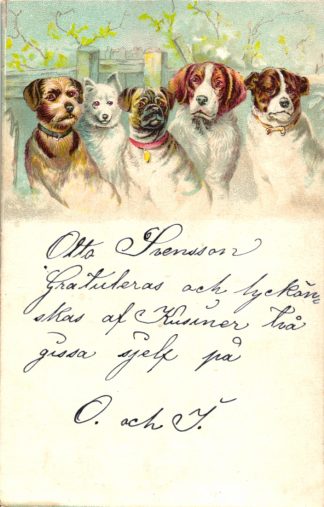 Otto Svensson
Gratuleras och lyckön-
skas af Kusiner två
gissa sjelf på
O. och I.